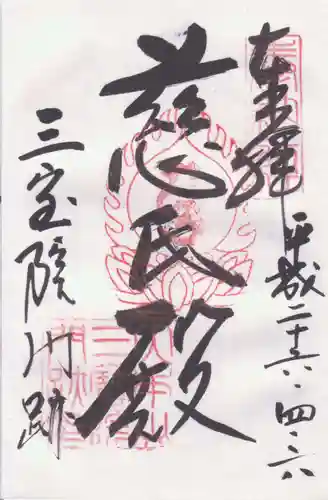 奉拝
平成二十六.四.六
慈氏殿
三宝院門跡